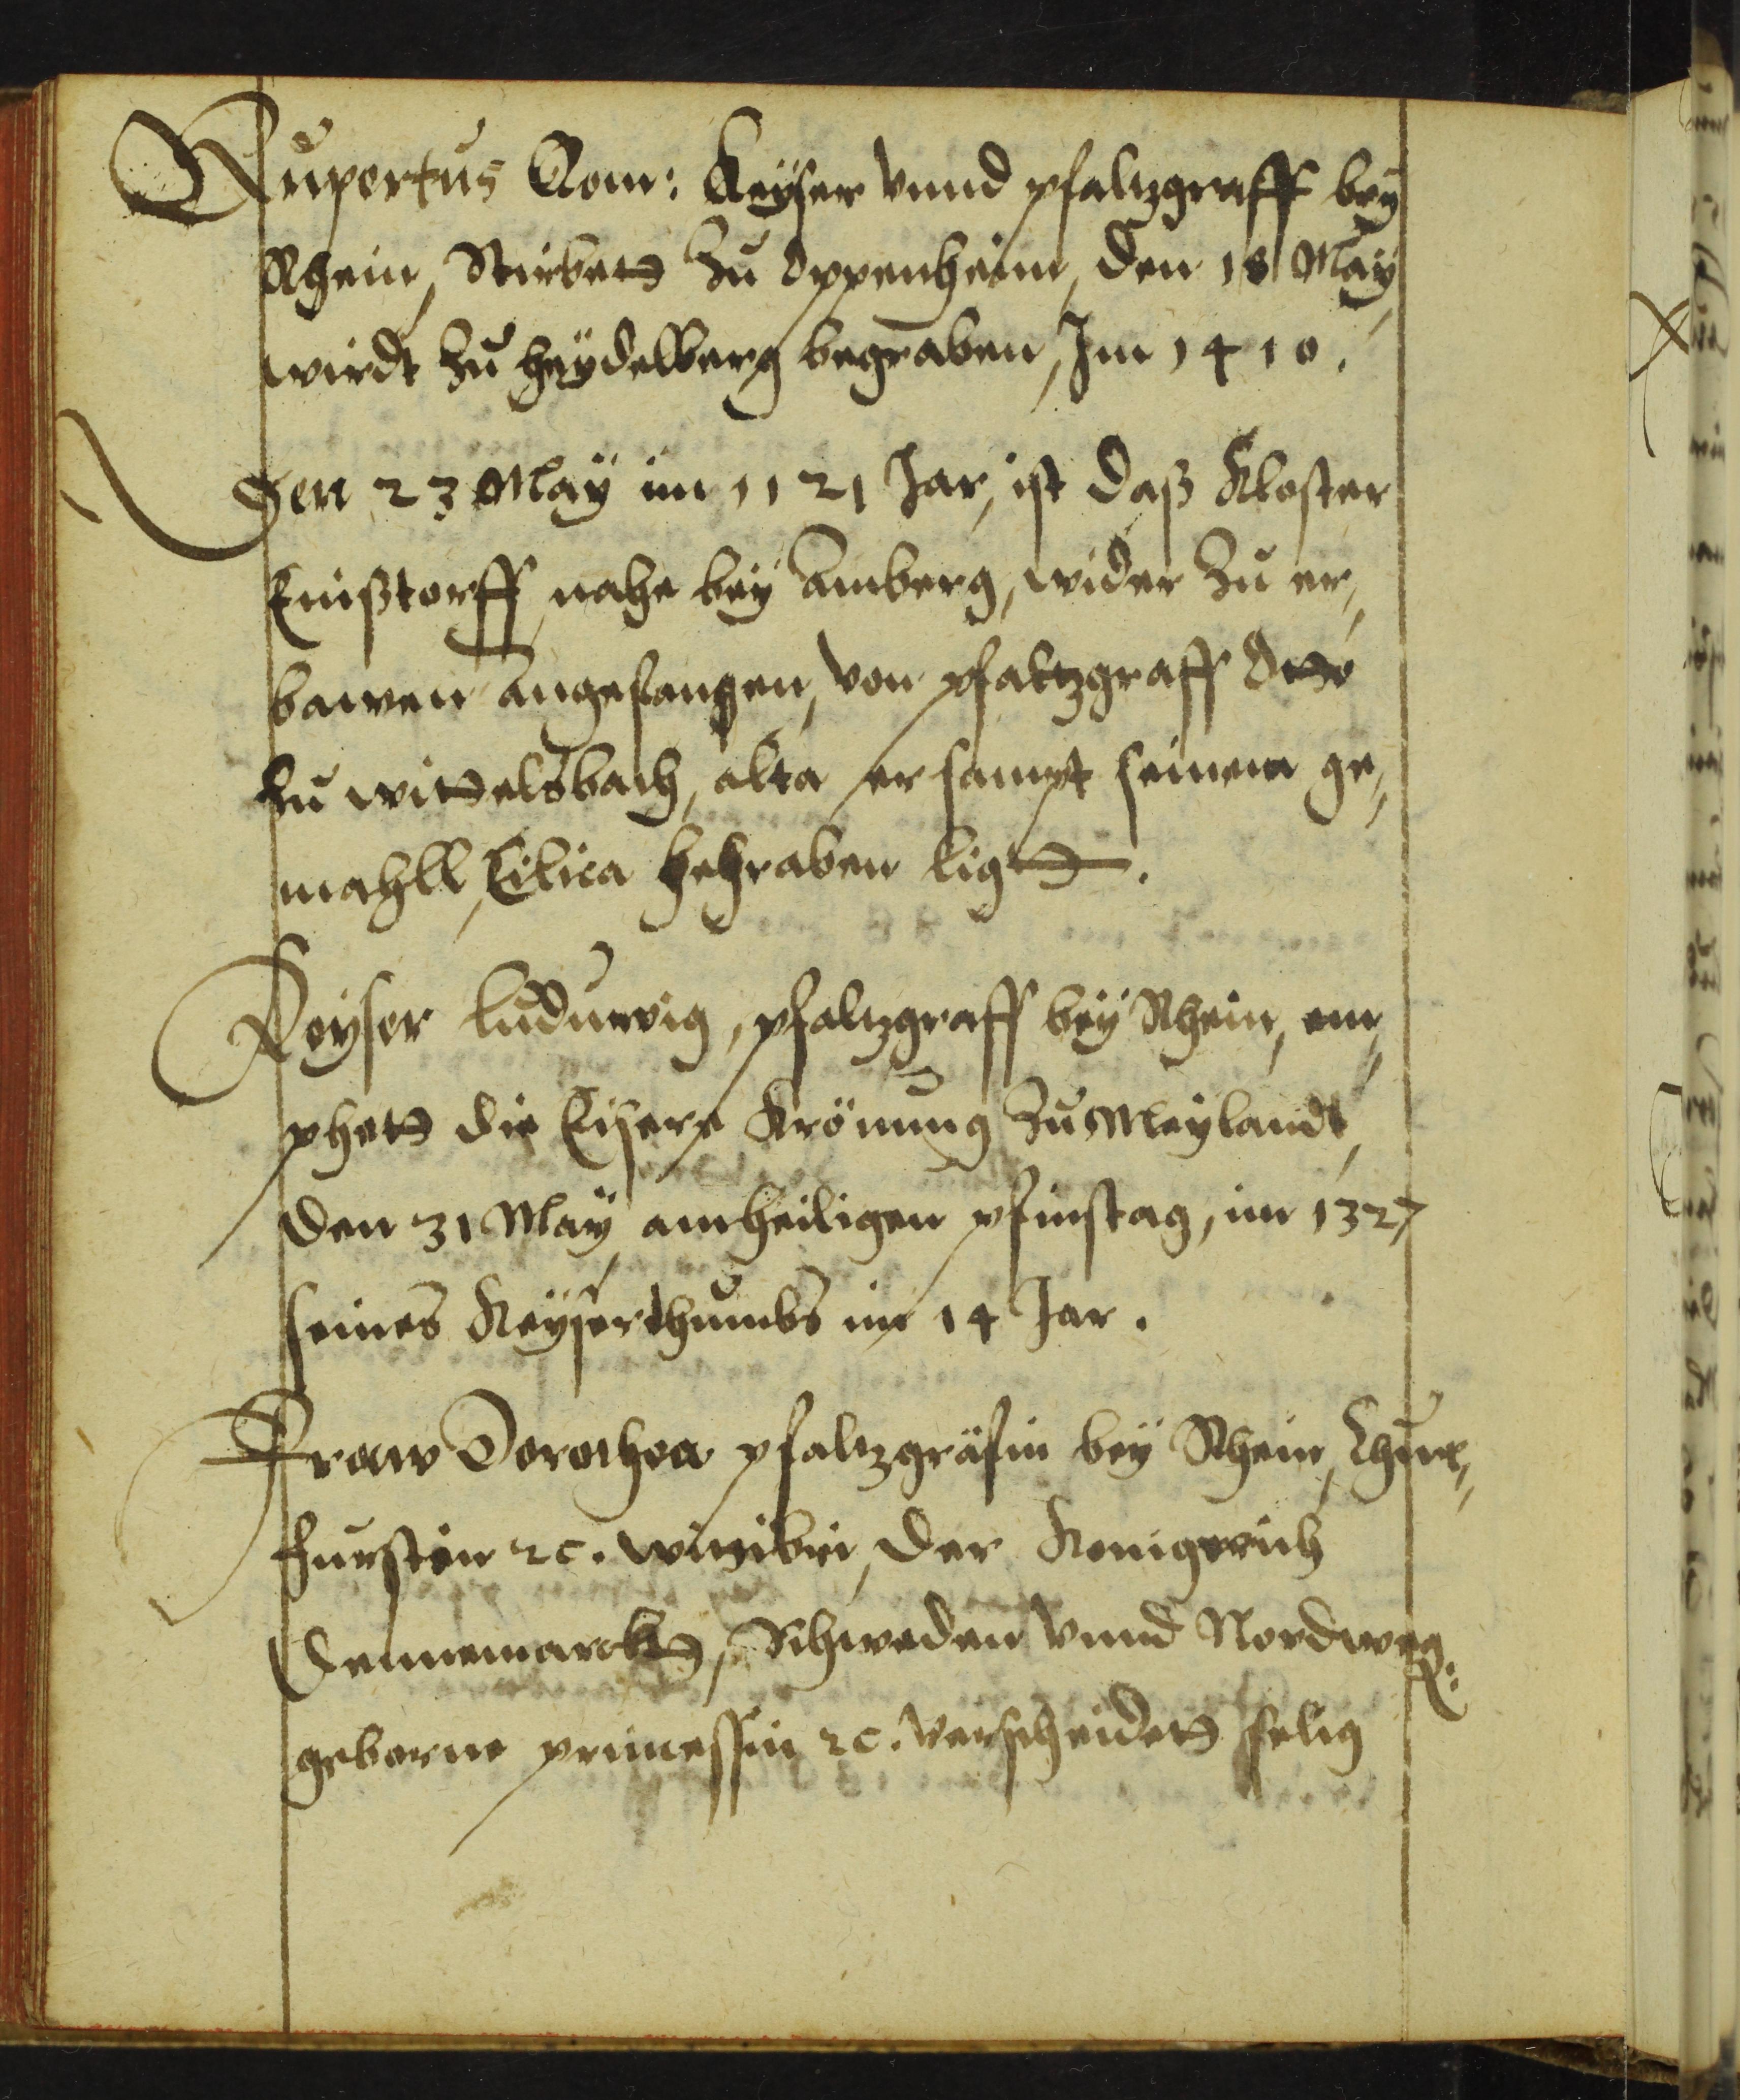 Rupertus Rom: Keÿser vnnd pfaltzgraff beÿ
Rhein, Stirbett zu Oppenheim, den 18 Maÿ,
wirdt zu heÿdelberg begraben, Im 1410.
Den 23 Maÿ im 1121 Jar, ist daß Kloster
Enißtorff nahe beÿ Amberg, wider zu er,,
bawen angefangen, von pfaltzgraff Otto
zu wittelsbach, alta er sampt seinem ge,,
mahll, Eilica hehraben ligtt.
Keyser luduwig, pfaltzgraff beÿ Rhein, em,,
phett die Eisere Krönung zu Meylandt,
den 31 Maÿ am heiligen pfinstag, im 1327
seines Keÿserthumbs im 14 Jar.
Fraw Dorothea pfaltzgräfin beÿ Rhein, Chur,,
furstin ꝛc. witibin, der Konigreich
Dennemarckt, Schweden vnnd Nordweg:
geborne princessin ꝛc. verscheidett selig